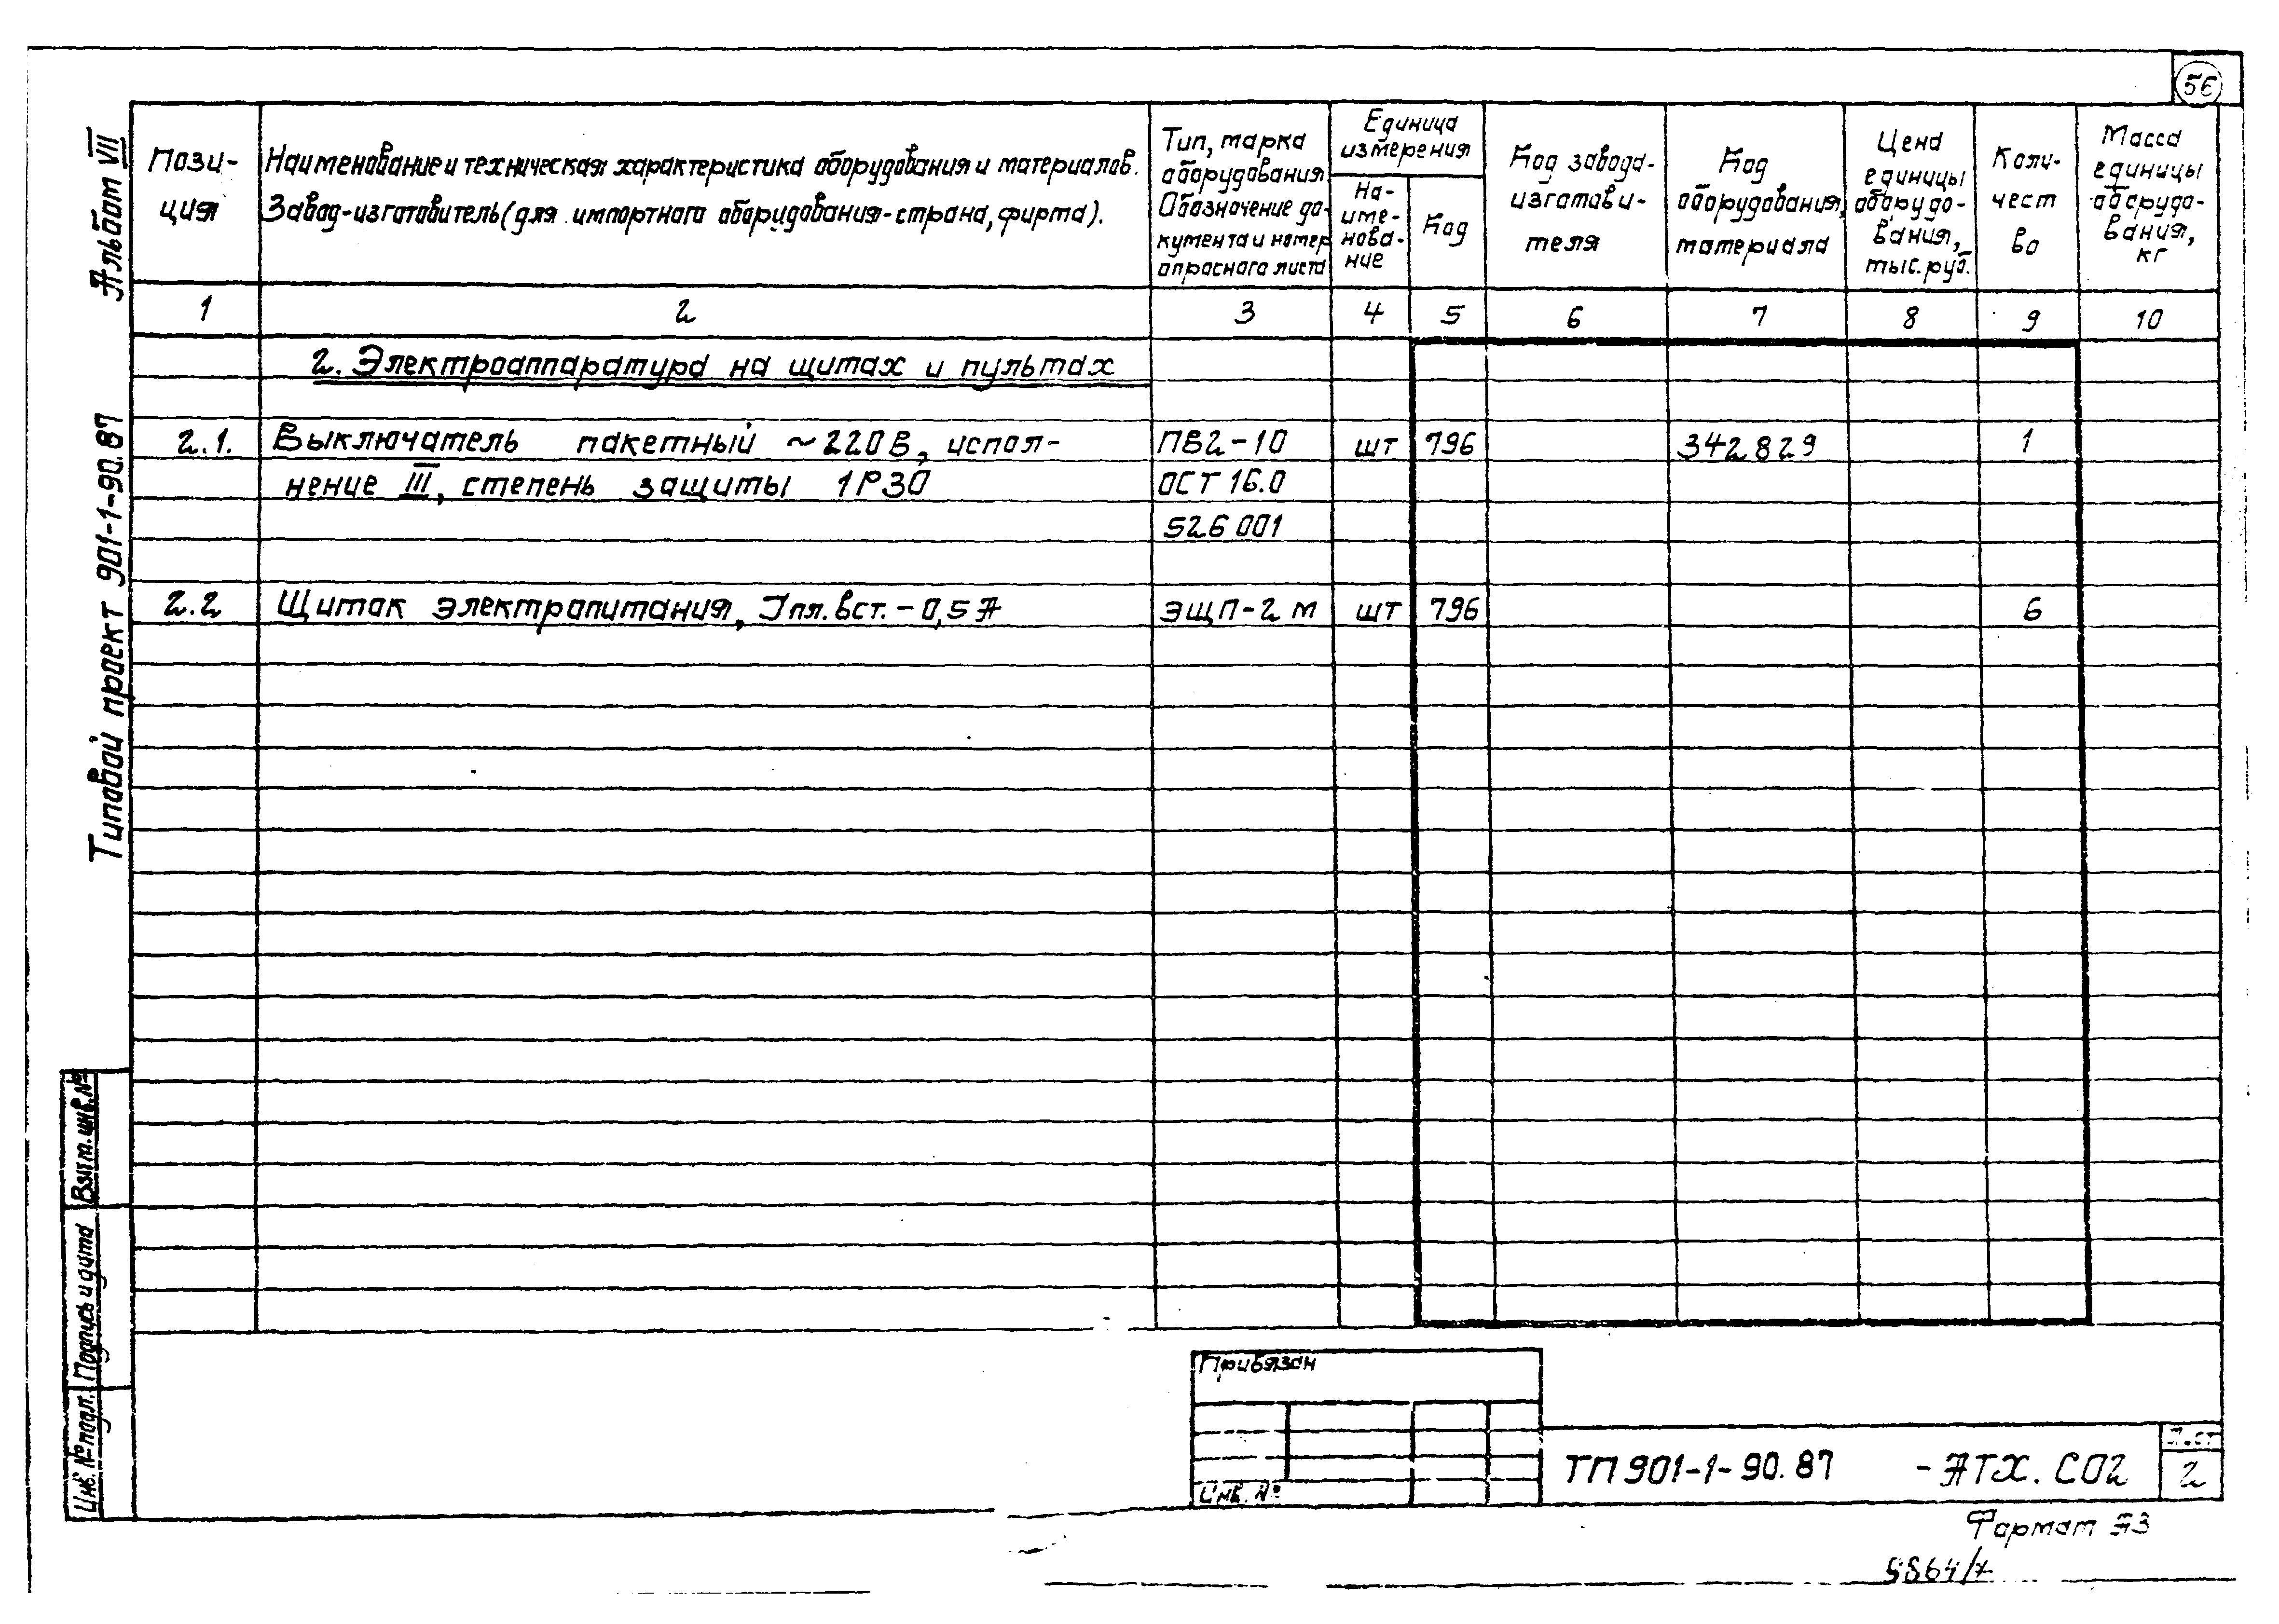 56
Альбом VII
Типовой проект 901-1-90.87
Пози-
ция
Наименование и техническая характеристика оборудования и материалов.
Завод-изготовитель (для импортного оборудования-страна, фирма).
Тип, марка
оборудования.
Обозначение до-
кумента и номер
опросного листа
Единица
измерения
На-
име-
нова-
ние
Код
Код завода-
изготови-
теля
Код
оборудования,
материала
Цена
единицы
оборудо-
вания,
тыс. руб.
Коли-
чест
во
Масса
единицы
оборудо-
вания,
кг
1 2 3 4 5 6 7 8 9 10
2. Электроаппаратура на щитах и пультах
2.1. Выключатель пакетный ~220В, испол- ПВ2-10 шт 796 342829 1
нение III, степень защиты 1Р30 ОСТ 16.0
526 001
2.2 Щиток электропитания, Iпл.вст.-0,5А ЭЩП-2м шт 796 6
Взам. инв. №
Подпись и дата
Инв. № подл.
Привязан
Инв. №
ТП 901-1-90.87 -АТХ. СО2
Лист
2
Формат А3
9864/7